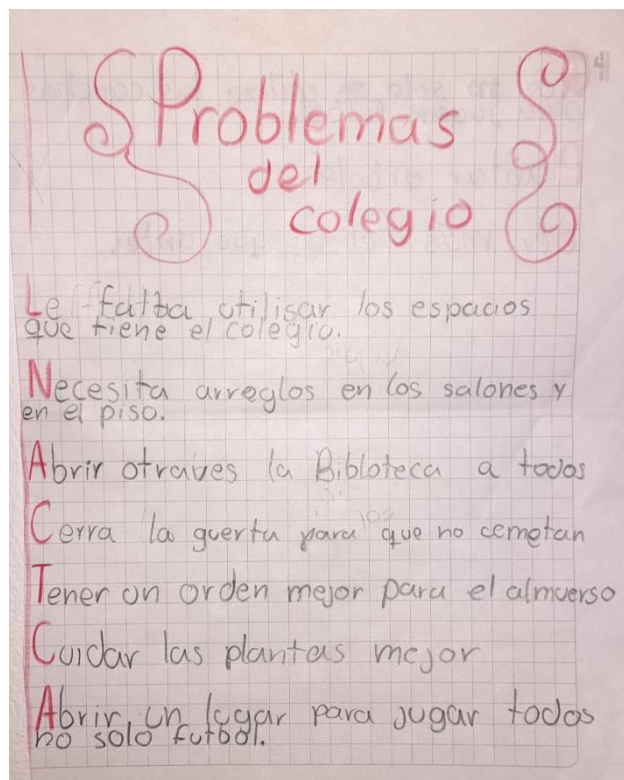 Problemas
del
colegio
Le falta utilisar los espacios
que tiene el colegio.
Necesita arreglos en los salones y
en el piso.
Abrir otraves la Bibloteca a todos
Cerra la guerta para que no cemetan
Tener un orden mejor para el almuerso
Cuidar las plantas mejor
Abrir un lugar para jugar todos
no solo futbol.